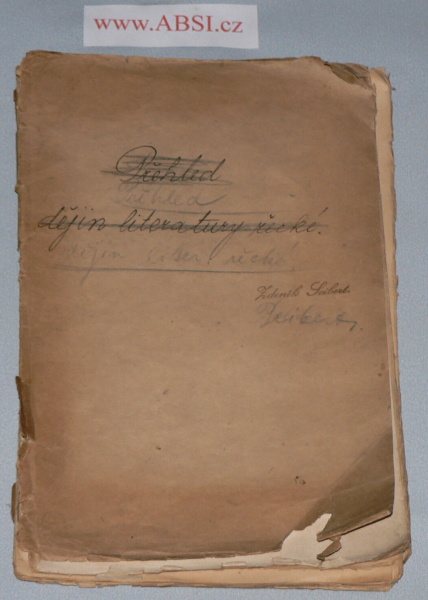 www.ABSI.cz
Přehled
Přehled
dějin literatury řecké.
dějin liter. řecké.
Zdeněk Seibert.
Seibert